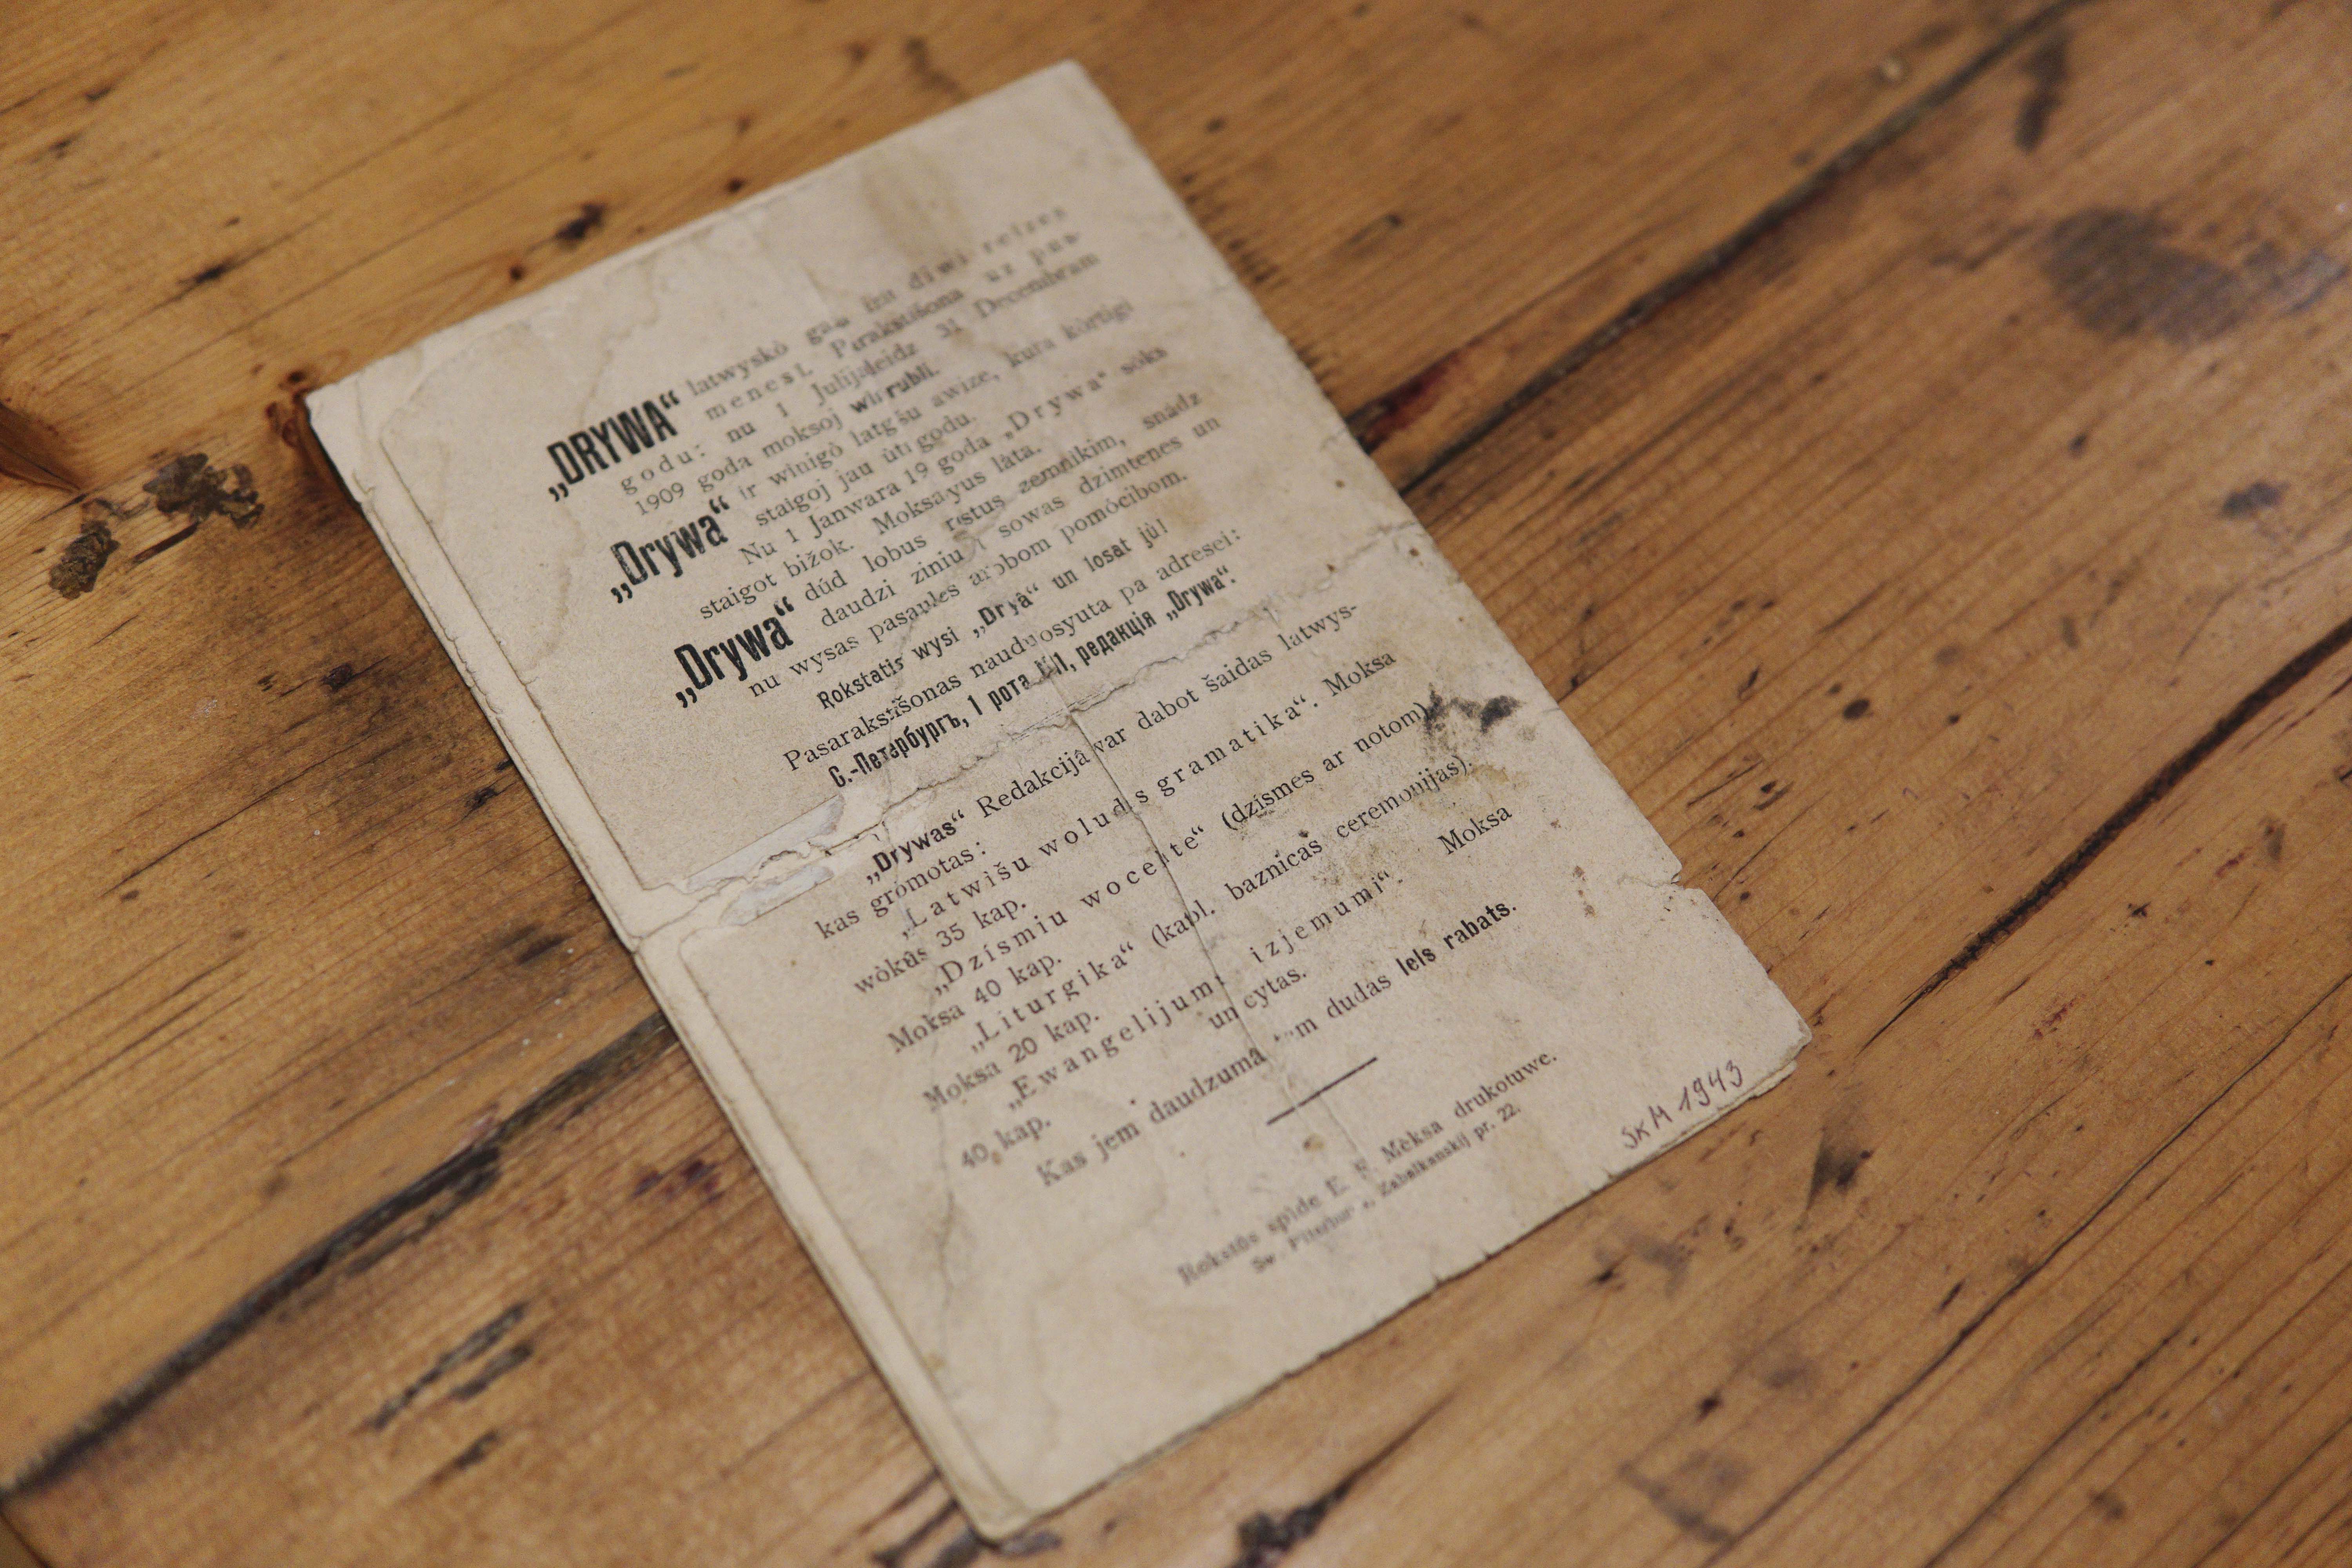 „DRYWA“ latwyskò izit diwi reizes
menesî. Parakstišona uz pus-
godu: nu 1 Julija leidz 31 Decembram
1909 goda moksoj rubli.
„Drywa“ ir winigò latgšu awize, kura kòrtigi
staigoj jau ûtu godu.
Nu 1 Janwara 19 goda „Drywa“ sòks
staigot bižok. Moksa yus làta.
„Drywa“ dúd lobus zemnikim, snádz
daudzi ziniu sowas dzimtenes un
nu wysas pasaules pomòcibom.
Rokstatis wysi un losat jù!
Pasarakstišonas nauda pa adresei:
С.-Петербургъ, 1 рота редакція „Drywa“.
„Drywas“ Redakcijâ war dabot šaidas latwys-
kas gròmotas:
„Latwišu woludas gramatika“. Moksa
wòkûs 35 kap.
„Dzísmiu wocelite“ (dzísmes ar notom).
Moksa 40 kap.
„Liturgika“ (kapl. baznicas ceremonijas).
Moksa 20 kap.
„Ewangelijumu izjemumi“. Moksa
40 kap. un cytas.
Kas jem daudzumâ dudas lels rabats.
Rokstûs spide E. Mèksa drukotuwe.
Zabalkanskij pr. 22.
SKM 1943